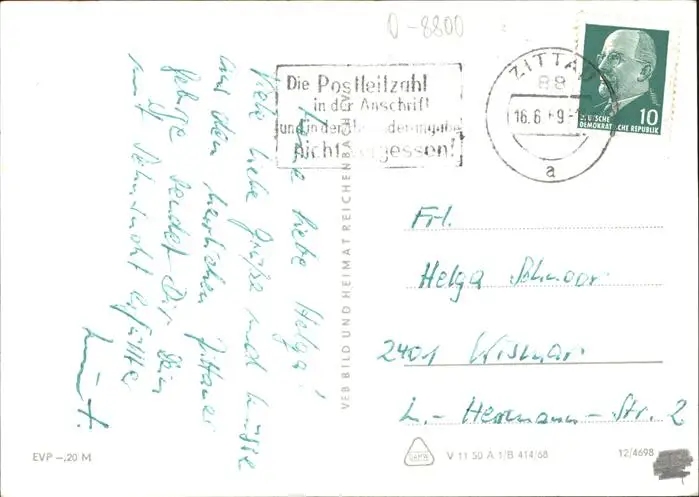 D-8800
Die Postleitzahl
in der Anschrift
und in der Absenderangabe
nicht vergessen!
ZITTAU
88
16.6.69-
a
10
DEUTSCHE
DEMOKRATISCHE REPUBLIK
Meine liebe Helga!
Viele liebe Grüße und Küsse
aus dem herrlichen Zittauer
Gebirge sendet Dir Dein
mit Sehnsucht erfüllter
VEB BILD UND HEIMAT REICHENBACH (V)
Frl.
Helga Schnoor
2401 Wismar
L.-Herrmann-Str. 2
EVP -,20 M
V 11 50 A 1/B 414/68
12/4698